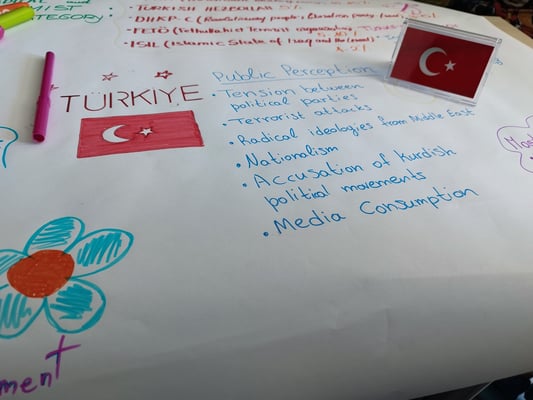 TURKISH HEZBOLLAH
• DHKP-C (Revolutionary people's liberation party
• FETÖ (Fethullahist Terrorist organization)
• ISIL (Islamic State of Iraq and the Levant)
TEGORY
TÜRKİYE
Public Perception
• Tension between
political parties
• Terrorist attacks
• Radical ideologies from Middle East
• Nationalism
• Accusation of Kurdish
political movements
• Media Consumption
ment